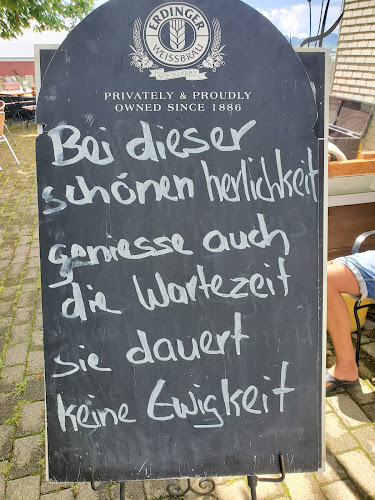 ERDINGER
WEISSBRÄU
PRIVATELY & PROUDLY
OWNED SINCE 1886
Bei dieser
schönen herlichkeit
geniesse auch
die Wartezeit
sie dauert
keine Ewigkeit